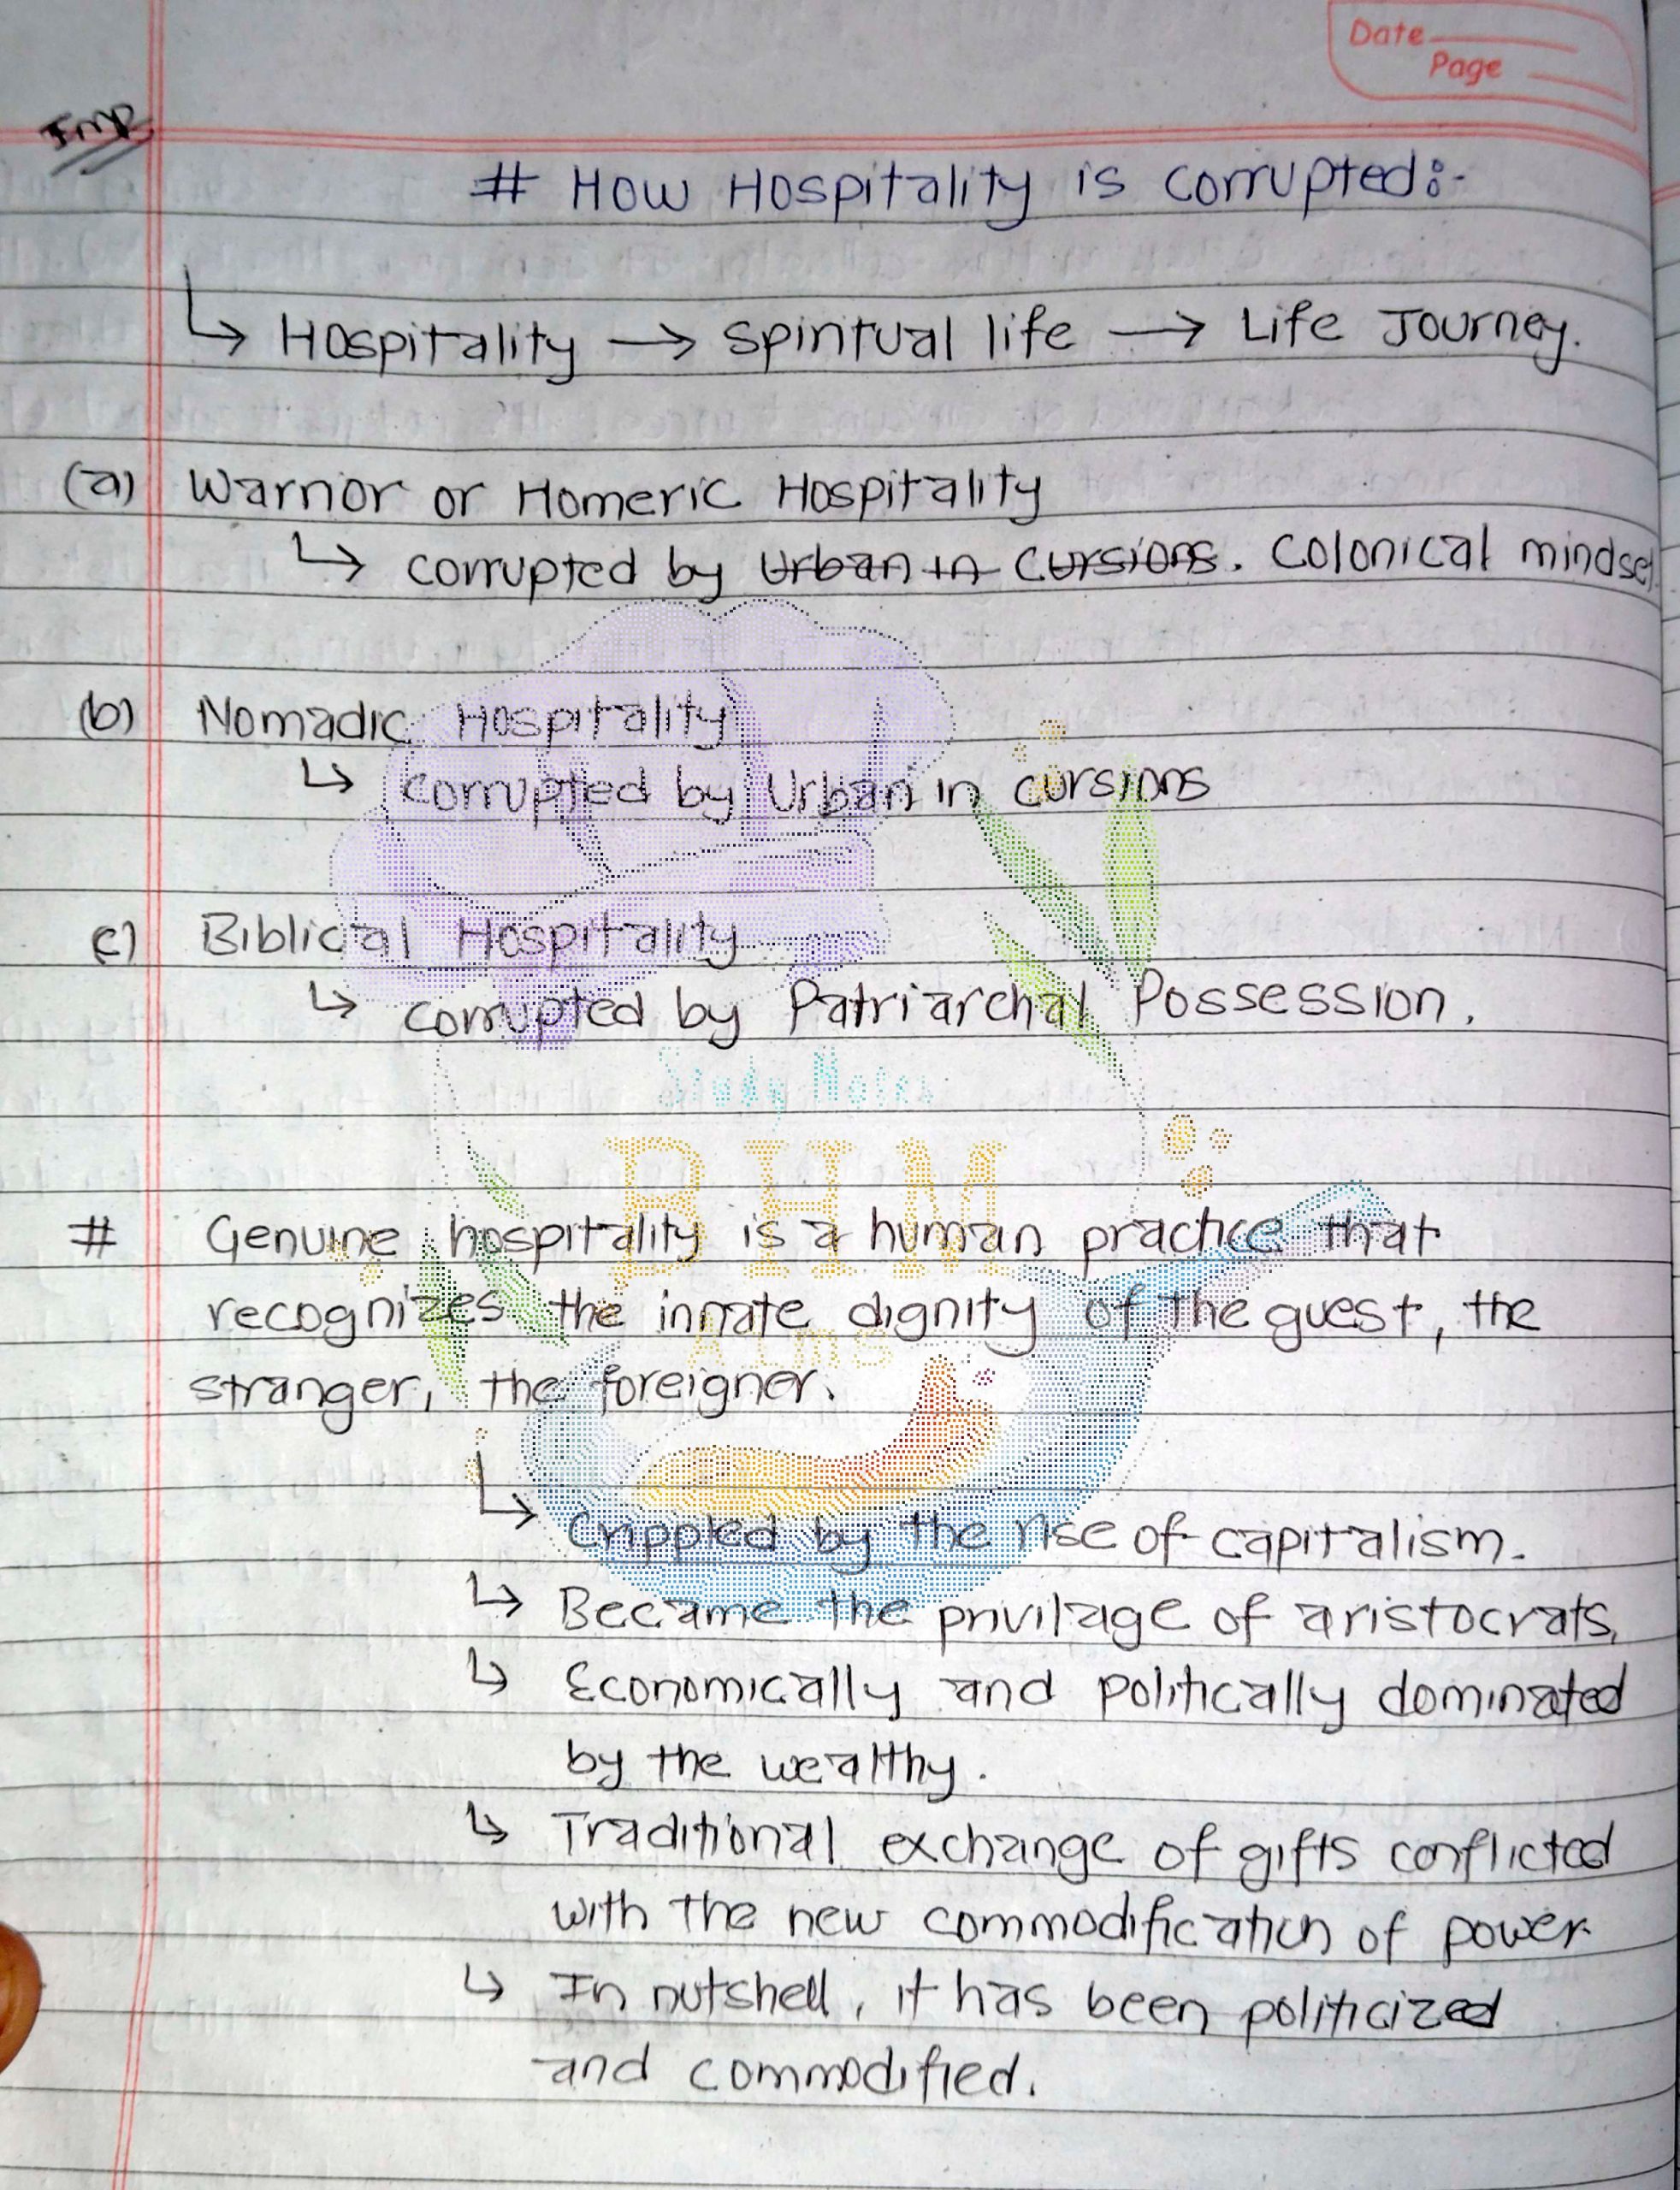 Date
Page
Imp
# How Hospitality is corrupted:-
↳ Hospitality → Spiritual life → Life Journey.
(a) Warrior or Homeric Hospitality
↳ corrupted by Urban in cursions. Colonical mindset
(b) Nomadic Hospitality
↳ corrupted by Urban in cursions
c) Biblical Hospitality
↳ corrupted by Patriarchal Possession.
Study Notes
BHM
Aims
# Genuine hospitality is a human practice that
recognizes the innate dignity of the guest, the
stranger, the foreigner.
↳ Crippled by the rise of capitalism.
↳ Became the privilage of aristocrats,
↳ Economically and politically dominated
by the wealthy.
↳ Traditional exchange of gifts conflicted
with the new commodification of power.
↳ In nutshell, it has been politicized
and commodified.